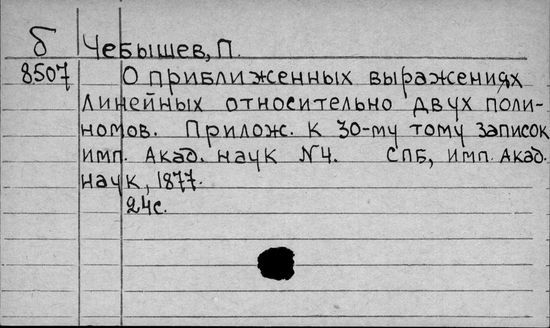 б Чебышев, П.
8507 О приближенных выражениях
линейных относительно двух поли-
номов. Прилож. к 30-му тому Записок
имп. Акад. наук №4. СПБ, имп. Акад.
наук, 1877.
24с.